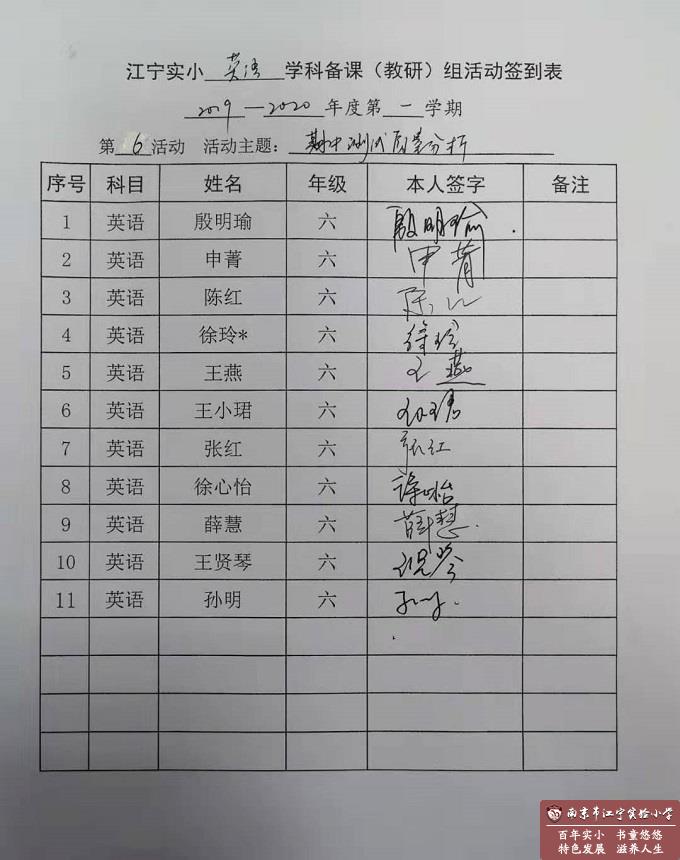 江宁实小 英语 学科备课（教研）组活动签到表
2019—2020 年度第 一 学期
第 6 活动 活动主题： 期中测试质量分析
序号 科目 姓名 年级 本人签字 备注
1 英语 殷明瑜 六 殷明瑜
2 英语 申菁 六 申菁
3 英语 陈红 六 陈红
4 英语 徐玲* 六 徐玲
5 英语 王燕 六 王燕
6 英语 王小珺 六 王小珺
7 英语 张红 六 张红
8 英语 徐心怡 六 徐心怡
9 英语 薛慧 六 薛慧
10 英语 王贤琴 六
11 英语 孙明 六 孙明
南京市江宁实验小学
百年实小 书童悠悠
特色发展 滋养人生